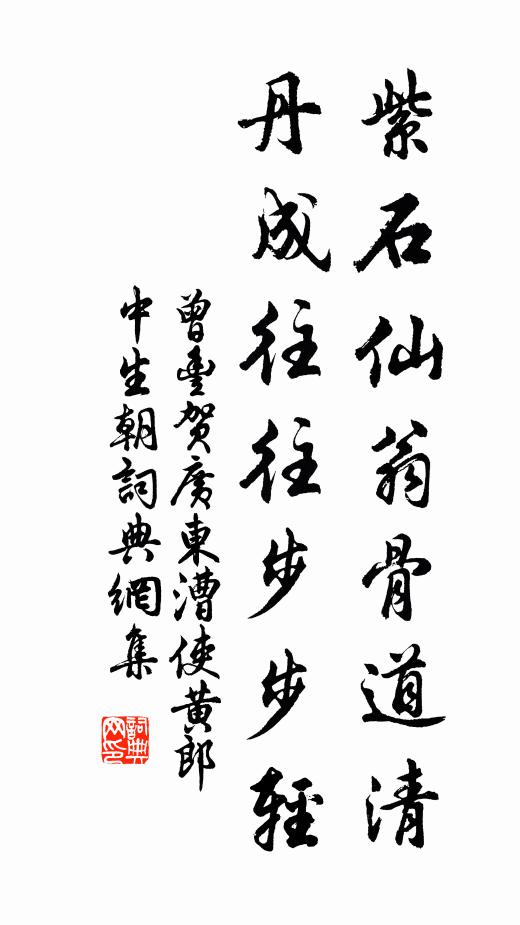 紫石仙翁骨道清
丹成往往步步輕
曾豐賀廣東漕使黃郎
中生朝詞典網集
詞典
网印